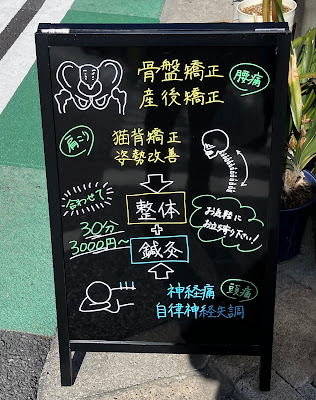 骨盤矯正
産後矯正
腰痛
肩こり
猫背矯正
姿勢改善
合わせて
整体
+
鍼灸
30分
3000円〜
お気軽に
お立ち寄り下さい!
神経痛
頭痛
自律神経失調